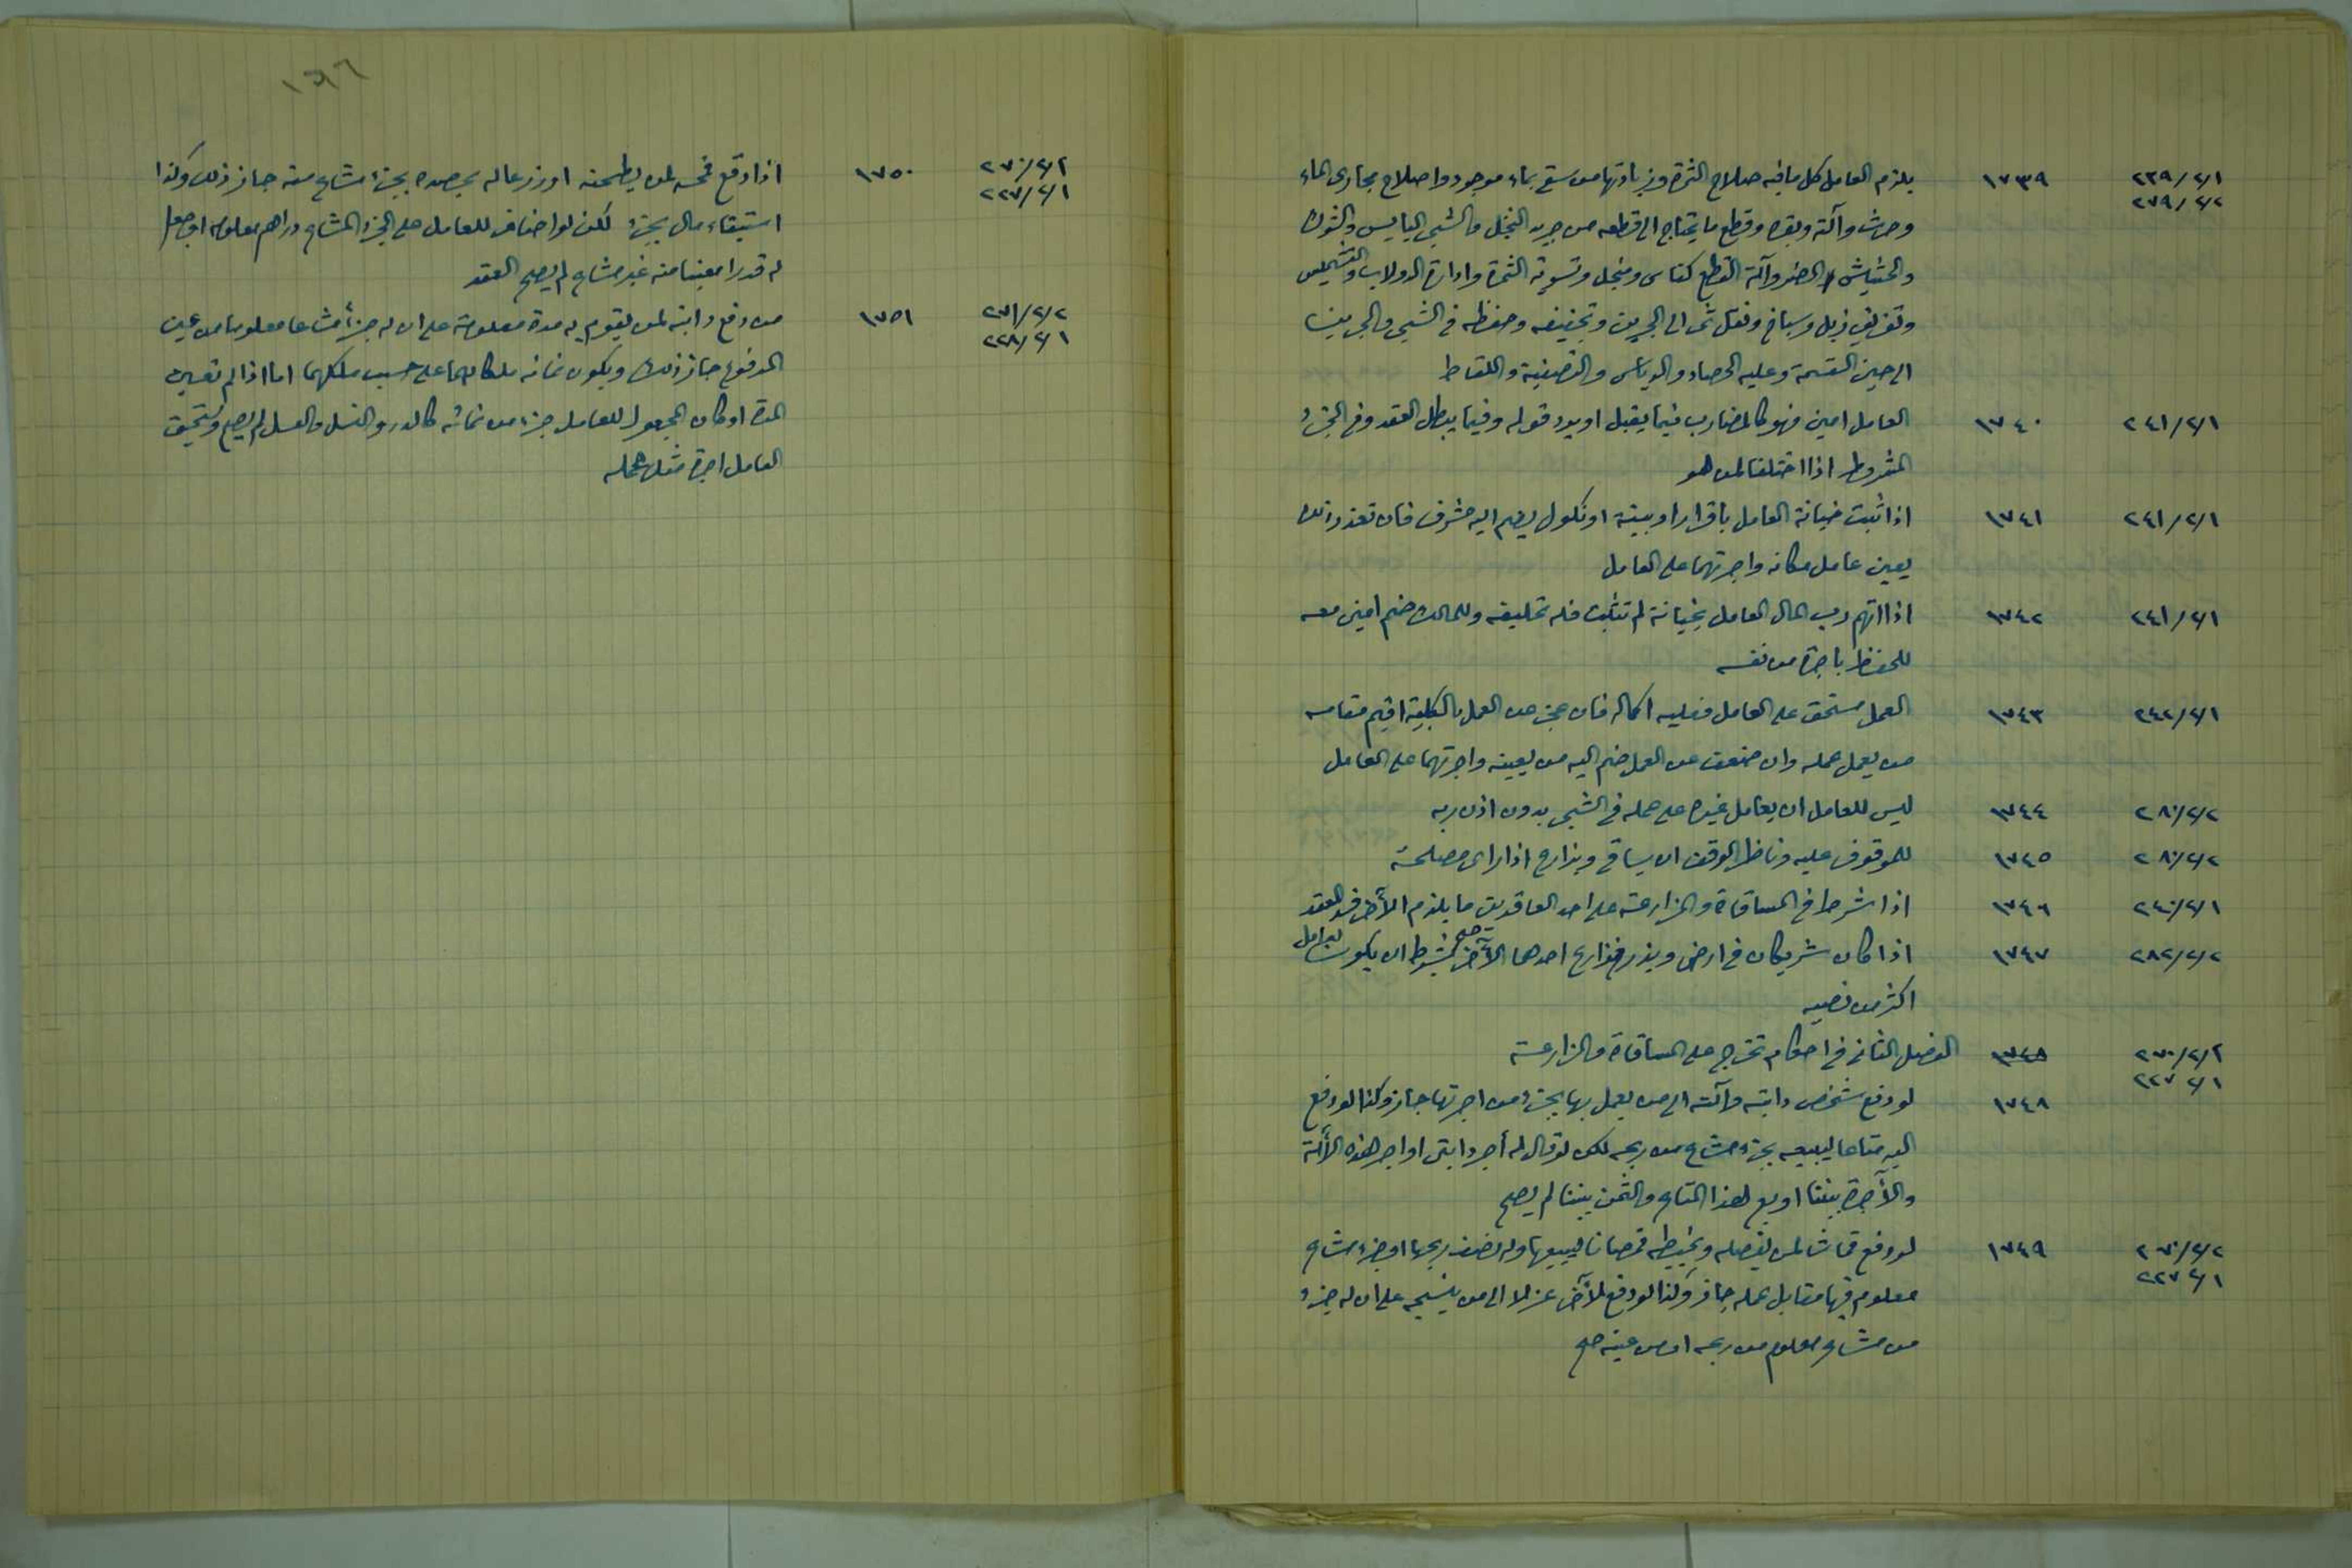 ٢٣٩/٢/١ ١٧٣٩ يلزم العامل كل ما فيه صلاح الثمرة وزيادتها من سقي بماء موجود واصلاح مجاري الماء
٢٧٩/٢/٢ وحرث وآلته وبقره وقطع ما يحتاج الى قطعه من جريد النخل والشجر اليابس والشوك
والحشيش المضر وآلة القطع كفاس ومنجل وتسوية الثمرة وادارة الدولاب والتشميس
وتفريق زبل وسباخ ونقل ثمر الى الجرين وتجفيفه وحفظه في الشجر والجرين
الى حين القسمة وعليه الحصاد والدياس والتصفية واللقاط
٢٤١/٢/١ ١٧٤٠ العامل امين فهو كالمضارب فيما يقبل او يرد قوله وفيما يبطل العقد وفي الجزء
المشروط اذا اختلفا لمن هو
٢٤١/٢/١ ١٧٤١ اذا ثبت خيانة العامل باقرار او بينة او نكول يضم اليه مشرف فان تعذر ذلك
يعين عامل مكانه واجرتهما على العامل
٢٤١/٢/١ ١٧٤٢ اذا اتهم رب المال العامل بخيانة لم تثبت فله تحليفه وللمالك ضم امين معه
للحفظ باجرة من نفسه
٢٤٢/٢/١ ١٧٤٣ العمل مستحق على العامل فعليه اكماله فان عجز عن العمل بالكلية اقيم مقامه
من يعمل عمله وان ضعف عن العمل ضم اليه من يعينه واجرتهما على العامل
٢٨٠/٢/٢ ١٧٤٤ ليس للعامل ان يعامل غيره على عمله في الشجر بدون اذن ربه
٢٨٠/٢/٢ ١٧٤٥ للموقوف عليه وناظر الوقف ان يساقي ويزارع اذا راى مصلحة
٢٤٠/٢/١ ١٧٤٦ اذا شرط في المساقاة والمزارعة على احد العاقدين ما يلزم الآخر فسد العقد
٢٨٢/٢/٢ ١٧٤٧ اذا كان شريكان في ارض وبذر فزارع احدهما الآخر صح بشرط ان يكون للعامل
اكثر من نصيبه
٢٧٠/٢/٢ ١٧٤٨ الفصل الثاني في احكام تخرج على المساقاة والمزارعة
٢٢٧ ٢/١
١٧٤٨ لو دفع شخص دابته وآلته الى من يعمل بها بجزء من اجرتها جاز وكذا لو دفع
اليه متاعا ليبيعه بجزء مشاع من ربحه لكن لو قال له أجر دابتي او اجر هذه الآلة
والأجرة بيننا او بع هذا المتاع والثمن بيننا لم يصح
٢٧٠/٢/٢ ١٧٤٩ لو دفع قماشا لمن يفصله ويخيطه قمصانا ليبيعها وله نصف ربحها او جزء مشاع
٢٢٧ ٢/١ معلوم فيها مقابل عمله جاز وكذا لو دفع لآخر غزلا الى من ينسجه على ان له جزء
من مشاع معلوم من ربحه او من عينه صح
١٦٦
٢٧٠/٢/٢ ١٧٥٠ اذا دفع قمحه لمن يطحنه او زرعا له يحصده بجزء مشاع منه جاز ذلك وكذا
٢٢٧/٢/١ استيفاء مال بجزء لكن لو اضاف للعامل على الجزء المشاع دراهم معلومة او جعل
له قدرا معينا منه غير مشاع لم يصح العقد
٢٧١/٢/٢ ١٧٥١ من دفع دابته لمن يقوم به مدة معلومة على ان له جزأ مشاعا معلوما من عين
٢٢٨/٢/١ المدفوع جاز ذلك ويكون نمائه ملكا لهما على حسب ملكهما اما اذا لم تعين
المدة او كان المجعول للعامل جزء من نمائه كالدر والنسل والعسل لم يصح ويستحق
العامل اجرة مثل عمله